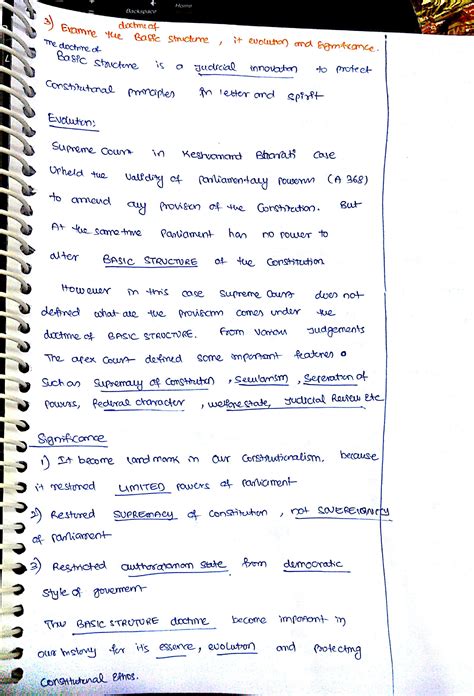 Backspace
Home
L
3) Examine the doctrine of Basic structure, it evolution and significance.
The doctrine of
Basic structure is a Judicial innovation to protect
Constitutional principles in letter and spirit
Evolution:
Supreme Court in Keshvanand Bharati case
Upheld the validity of parliamentary powers (A 368)
to amend any provision of the Constitution. But
At the same time Parliament has no power to
alter BASIC STRUCTURE of the Constitution
However in this case Supreme Court does not
defined what are the provisions comes under the
doctrine of BASIC STRUCTURE. From various Judgements
The apex Court defined some important features
Such as Supremacy of Constitution, Secularism, Seperation of
powers, Federal character, welfare state, Judicial Review etc
Significance
1) It become land mark in our Constitutionalism, because
it restored LIMITED powers of parliament
2) Restored SUPREMACY of Constitution, not SOVEREIGNITY
of parliament
3) Restricted authoratarian state from democratic
style of goverment
Thus BASIC STRUTURE doctrine become important in
our history for its essence, evolution and protecting
Constitutional Ethos.